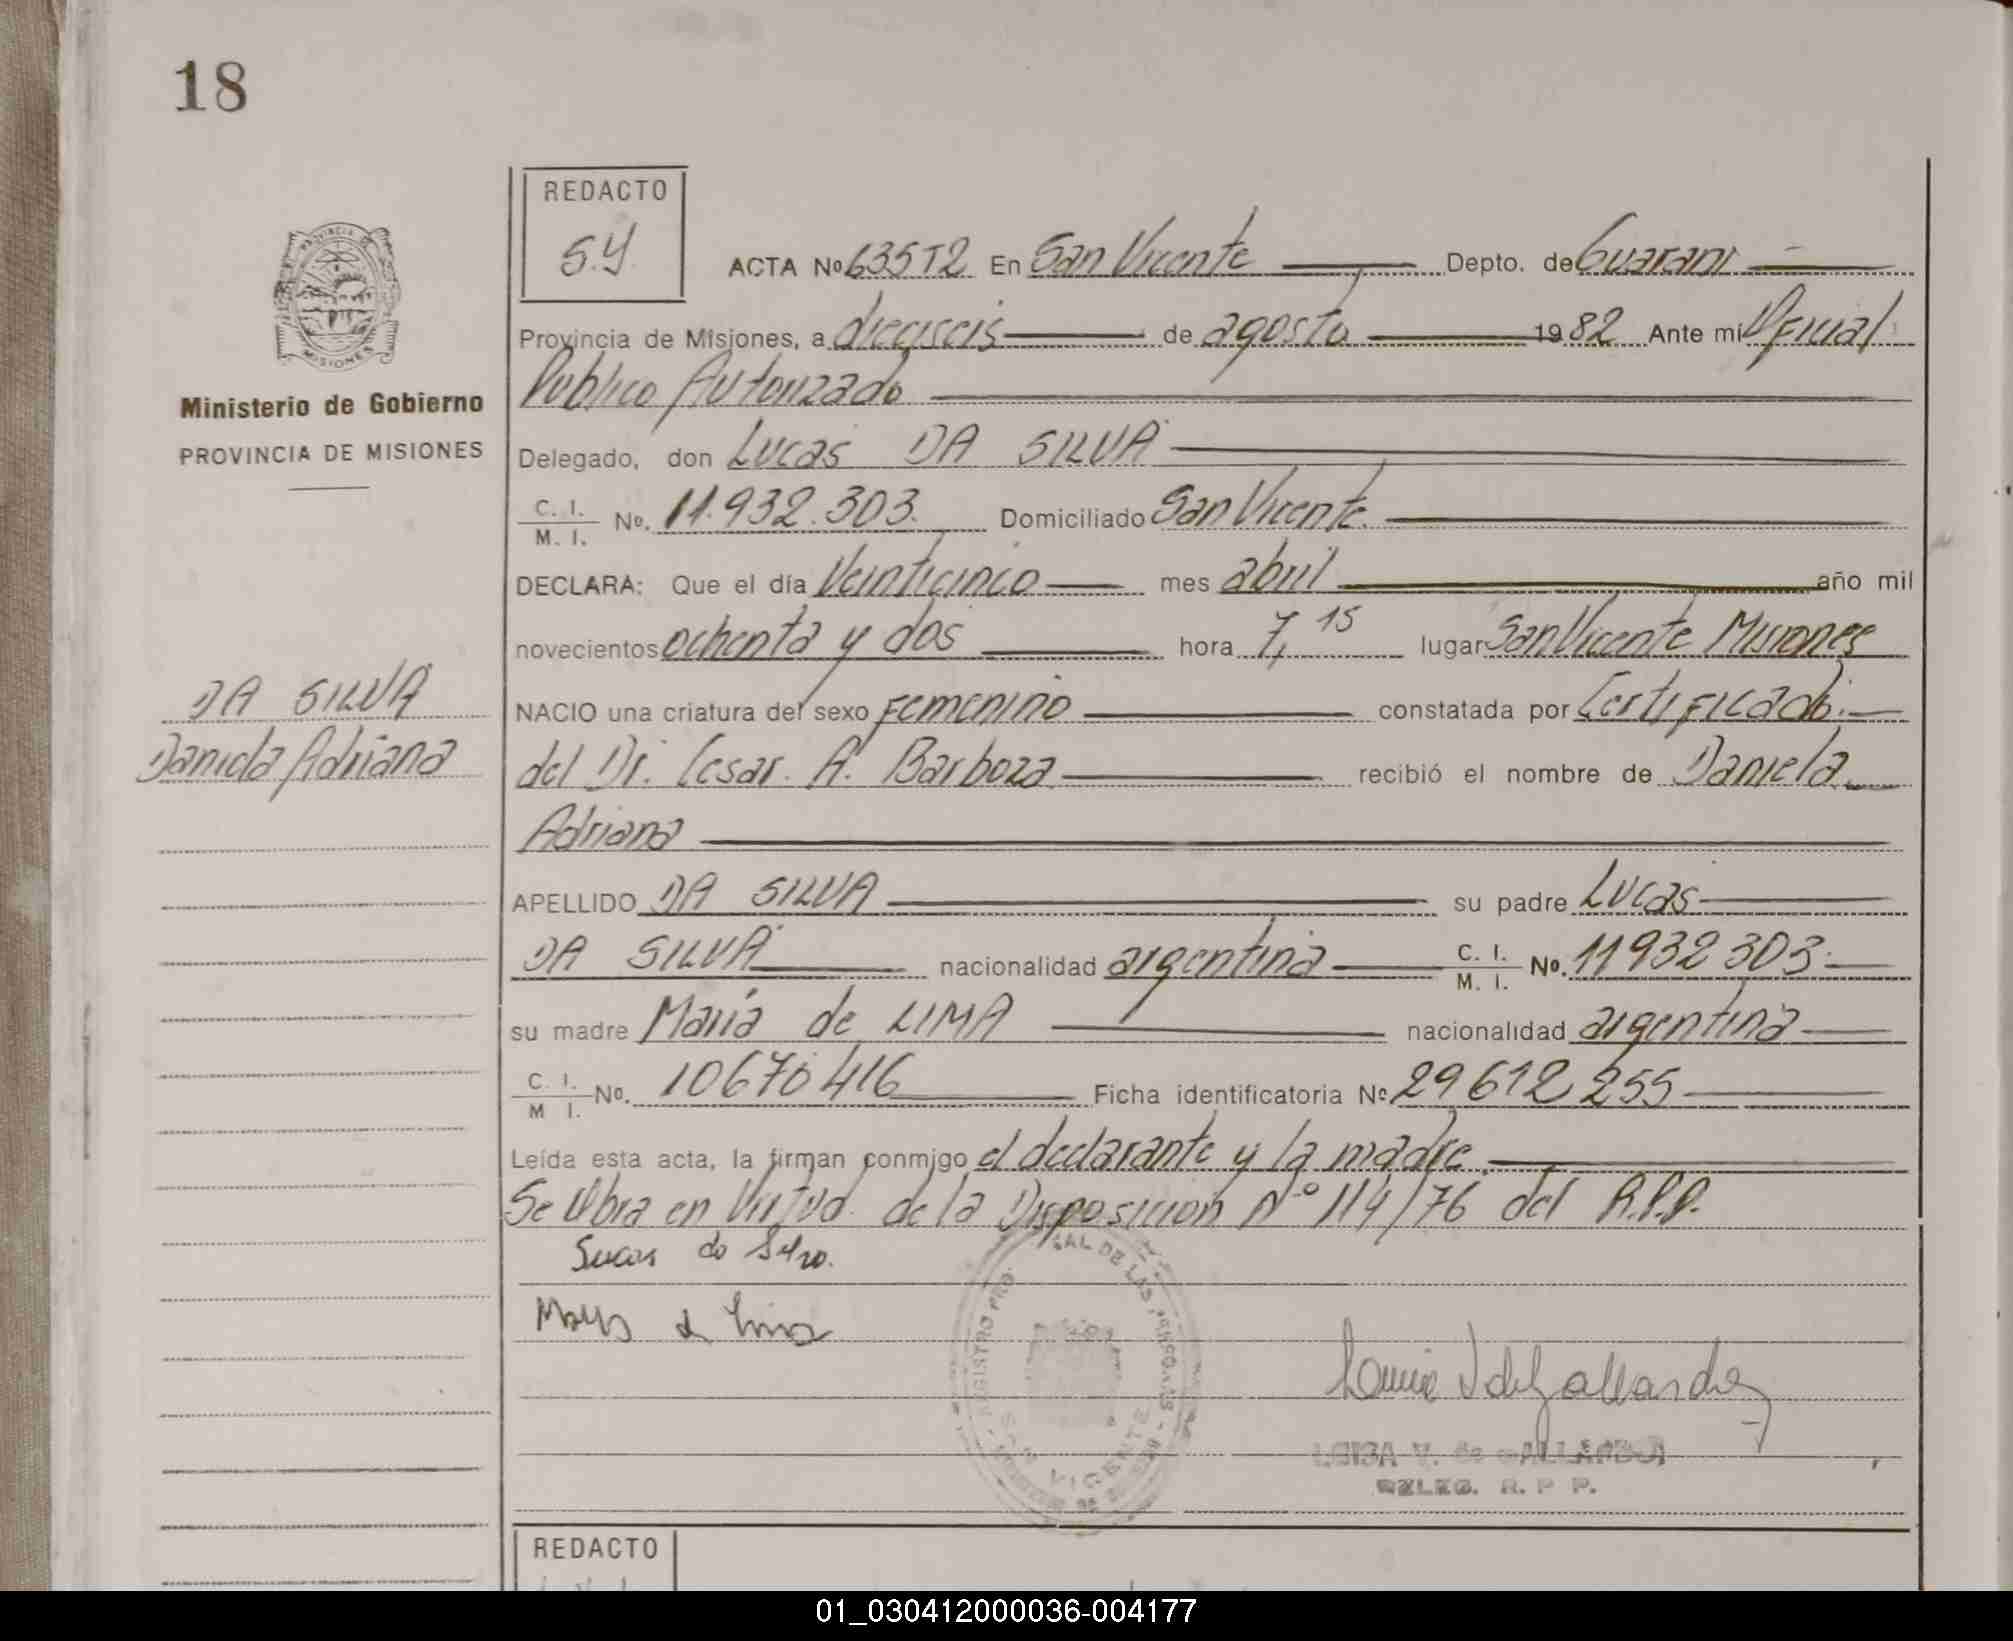 18
REDACTO
S.Y.
ACTA No 635T2 En San Vicente Depto. de Guarani
Provincia de Misiones, a dieciseis de agosto 1982 Ante mi Oficial
Publico Autorizado
Delegado, don Lucas DA SILVA
C. I. / M. I. No. 11.932.303. Domiciliado San Vicente
DECLARA: Que el día Veinticinco mes abril año mil
novecientos ochenta y dos hora 7,15 lugar San Vicente Misiones
NACIO una criatura del sexo Femenino constatada por Certificado
del Dr. Cesar. A. Barboza recibió el nombre de Daniela
Adriana
APELLIDO DA SILVA su padre Lucas
DA SILVA nacionalidad argentina C. I. / M. I. No. 11932303
su madre María de LIMA nacionalidad argentina
C. I. / M I. No. 10670416 Ficha identificatoria No 29612255
Leída esta acta, la firman conmigo el declarante y la madre.
Se labra en Virtud de la Disposicion Nº 114/76 del R.P.P.
Lucas da Silva.
de Lima
REGISTRO PRO. DE LAS PERSONAS
SAN VICENTE
LUISA V. de GALLARDO
DELEG. R. P P.
PROVINCIA DE
MISIONES
Ministerio de Gobierno
PROVINCIA DE MISIONES
DA SILVA
Daniela Adriana
REDACTO
01_030412000036-004177